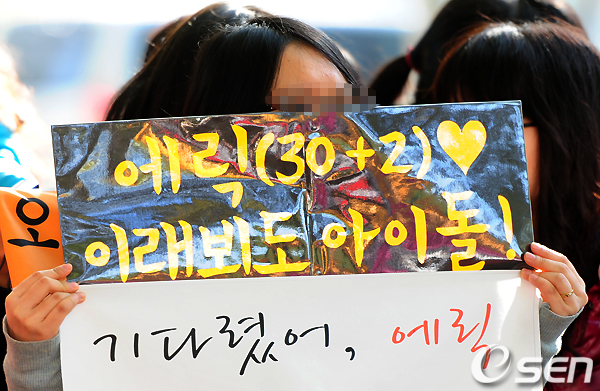 에릭(30+2)♥
이래뵈도 아이돌!
기다렸어, 에릭
OSEN